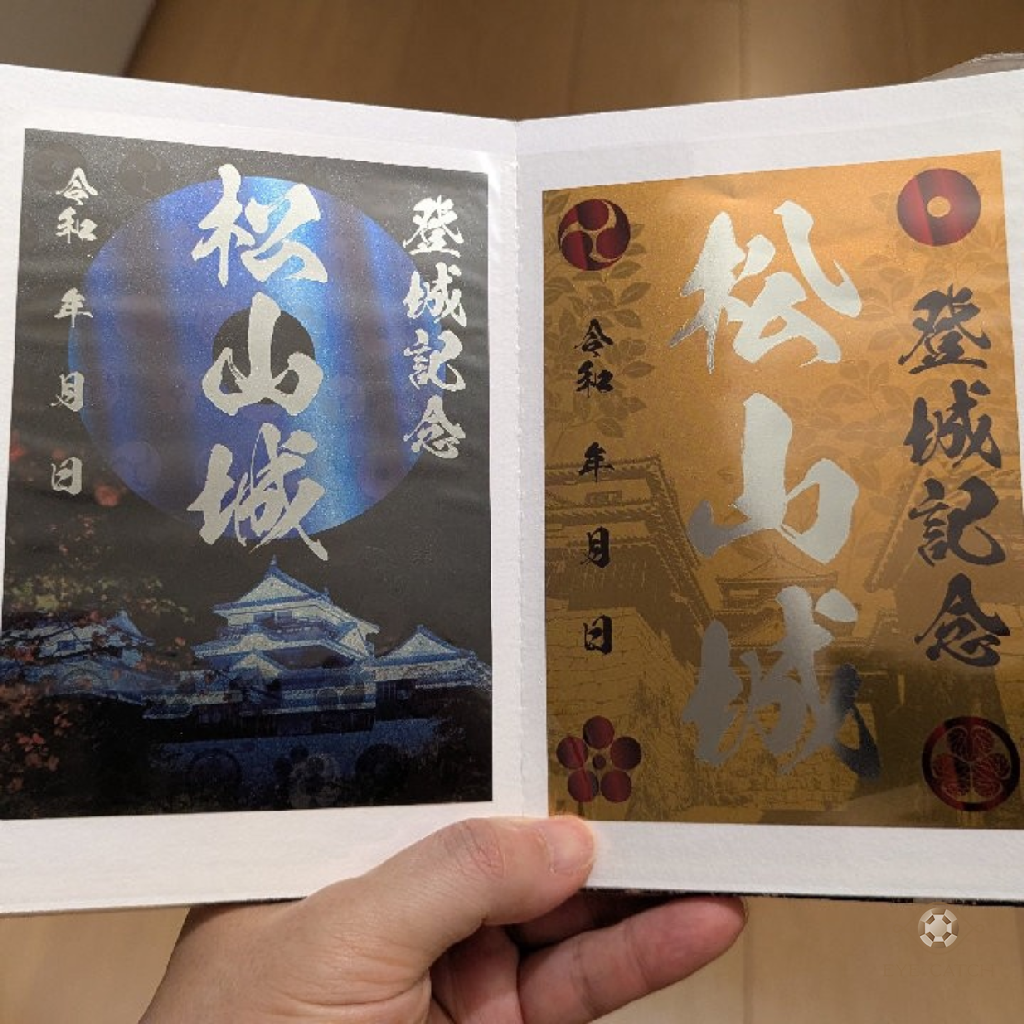 登城記念
松山城
令和 年 月 日
登城記念
松山城
令和 年 月 日